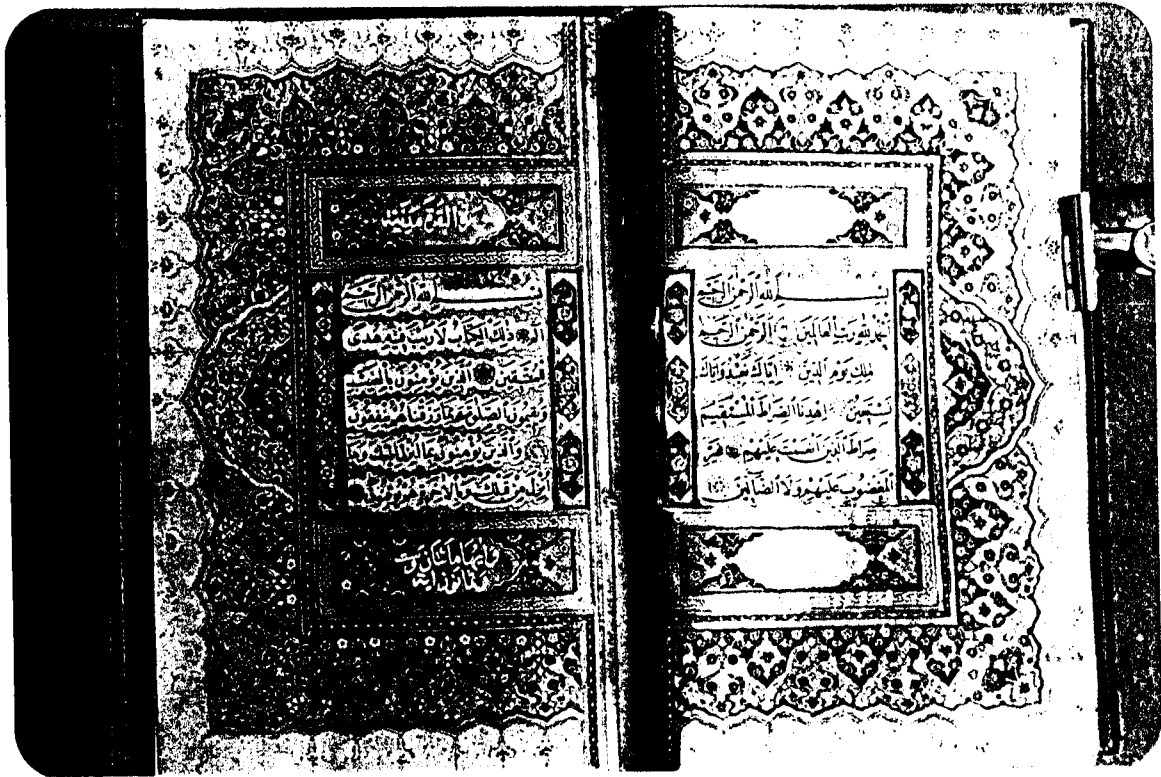 بسم الله الرحمن الرحيم
الحمد لله رب العالمين الرحمن الرحيم
ملك يوم الدين اياك نعبد واياك
نستعين اهدنا الصراط المستقيم
صراط الذين انعمت عليهم غير
المغضوب عليهم ولا الضالين
البقرة
بسم الله الرحمن الرحيم
الم ذلك الكتاب لا ريب فيه هدى
للمتقين الذين يؤمنون بالغيب
ويقيمون الصلوة ومما رزقناهم ينفقون
والذين يؤمنون بما انزل اليك وما
انزل من قبلك وبالاخرة هم يوقنون
وآيها مائتان وست
وثمانون آية